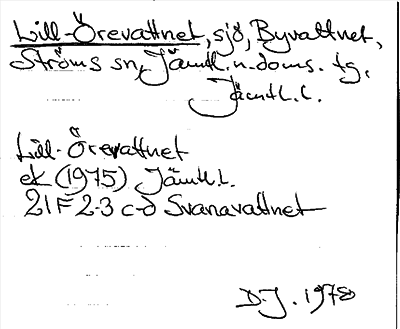 Lill-Örevattnet, sjö, Byvattnet,
Ströms sn, Jämtl. n. doms. tg,
Jämtl. l.
Lill-Örevattnet
ek (1975) Jämtl. l.
21F 2-3 c-d Svanavattnet
D-J. 1978